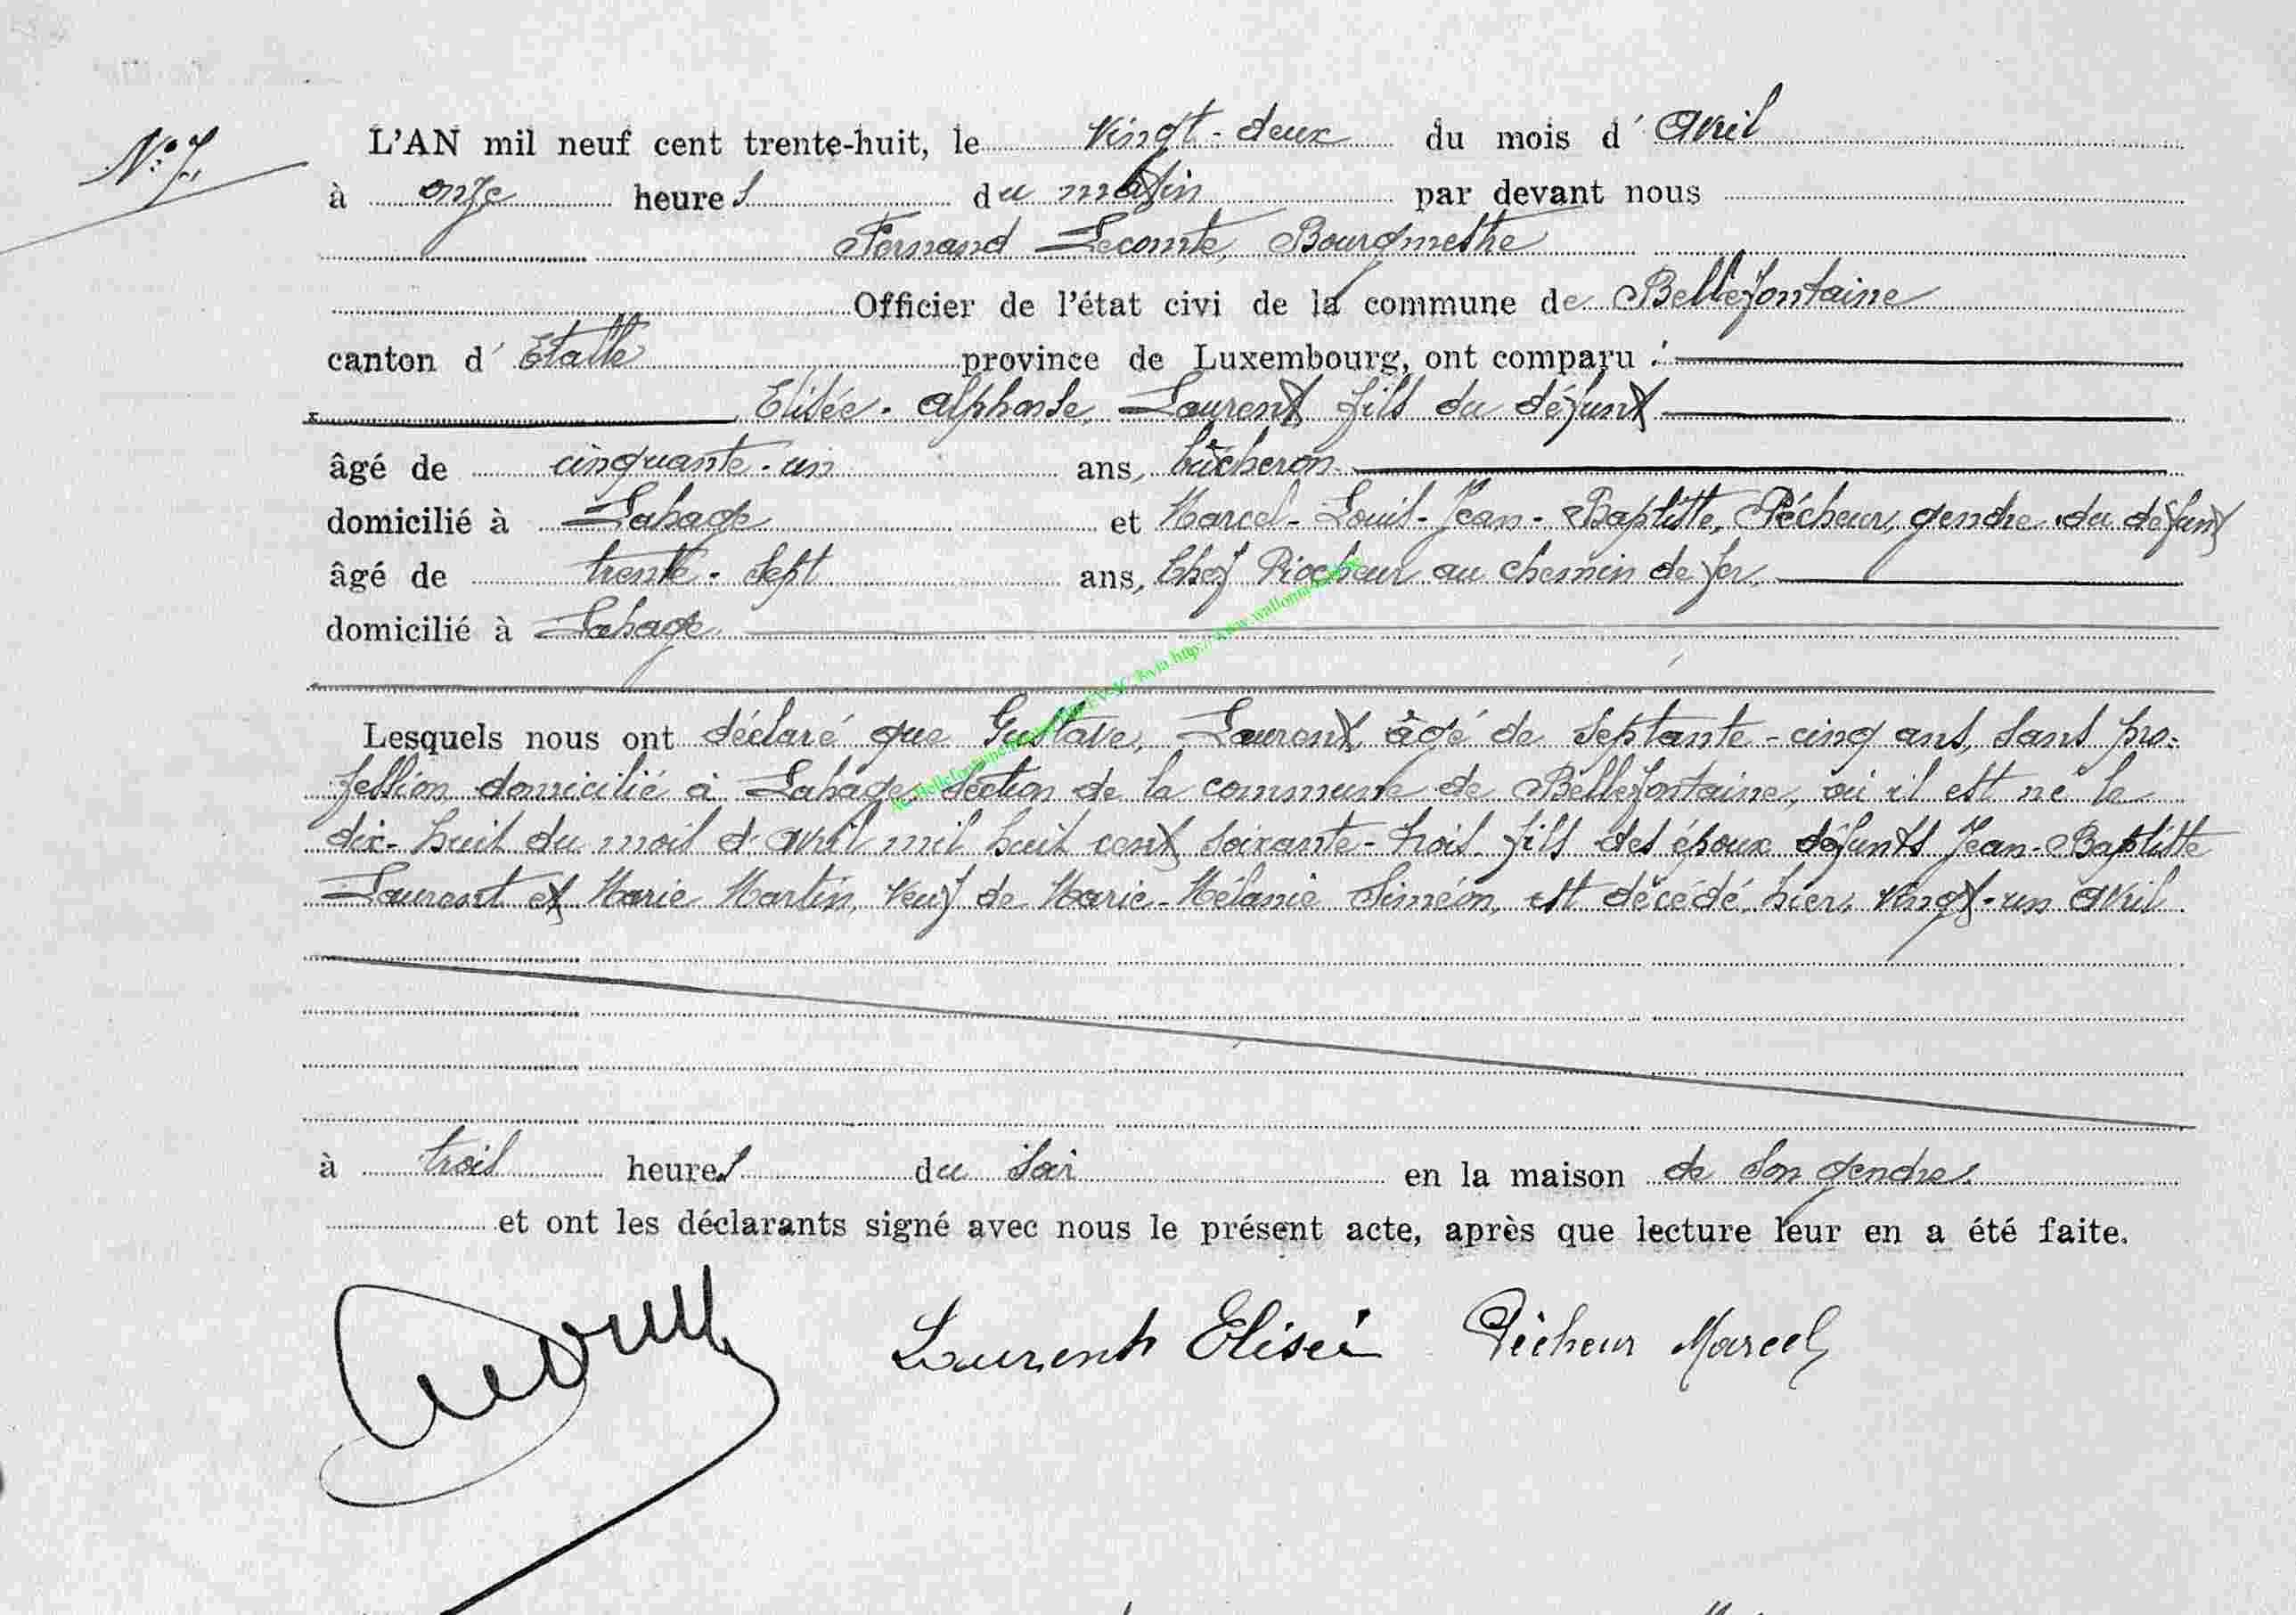 N° 7.
L'AN mil neuf cent trente-huit, le vingt-deux du mois d' Avril
à onze heures du matin par devant nous
Fernand Lecomte, Bourgmestre
Officier de l'état civi de la commune de Bellefontaine
canton d' Etalle province de Luxembourg, ont comparu :
Elisée-Alphonse, Laurent fils du défunt
âgé de cinquante-un ans, bûcheron
domicilié à Lahage et Marcel-Louis-Jean-Baptiste, Pécheur, gendre du défunt
âgé de trente-sept ans, Chef Piocheur au chemin de fer,
domicilié à Lahage
Lesquels nous ont déclaré que Gustave, Laurent, âgé de septante-cinq ans, sans pro-
fession domicilié à Lahage section de la commune de Bellefontaine, où il est né le
dix-huit du mois d'avril mil huit cent soixante-trois, fils des époux défunts Jean-Baptiste
Laurent et Marie Martin, veuf de Marie-Mélanie Siméon, est décédé, hier, vingt-un avril
à trois heures du soir en la maison de son gendre.
et ont les déclarants signé avec nous le présent acte, après que lecture leur en a été faite.
Laurent Elisée Pécheur Marcel